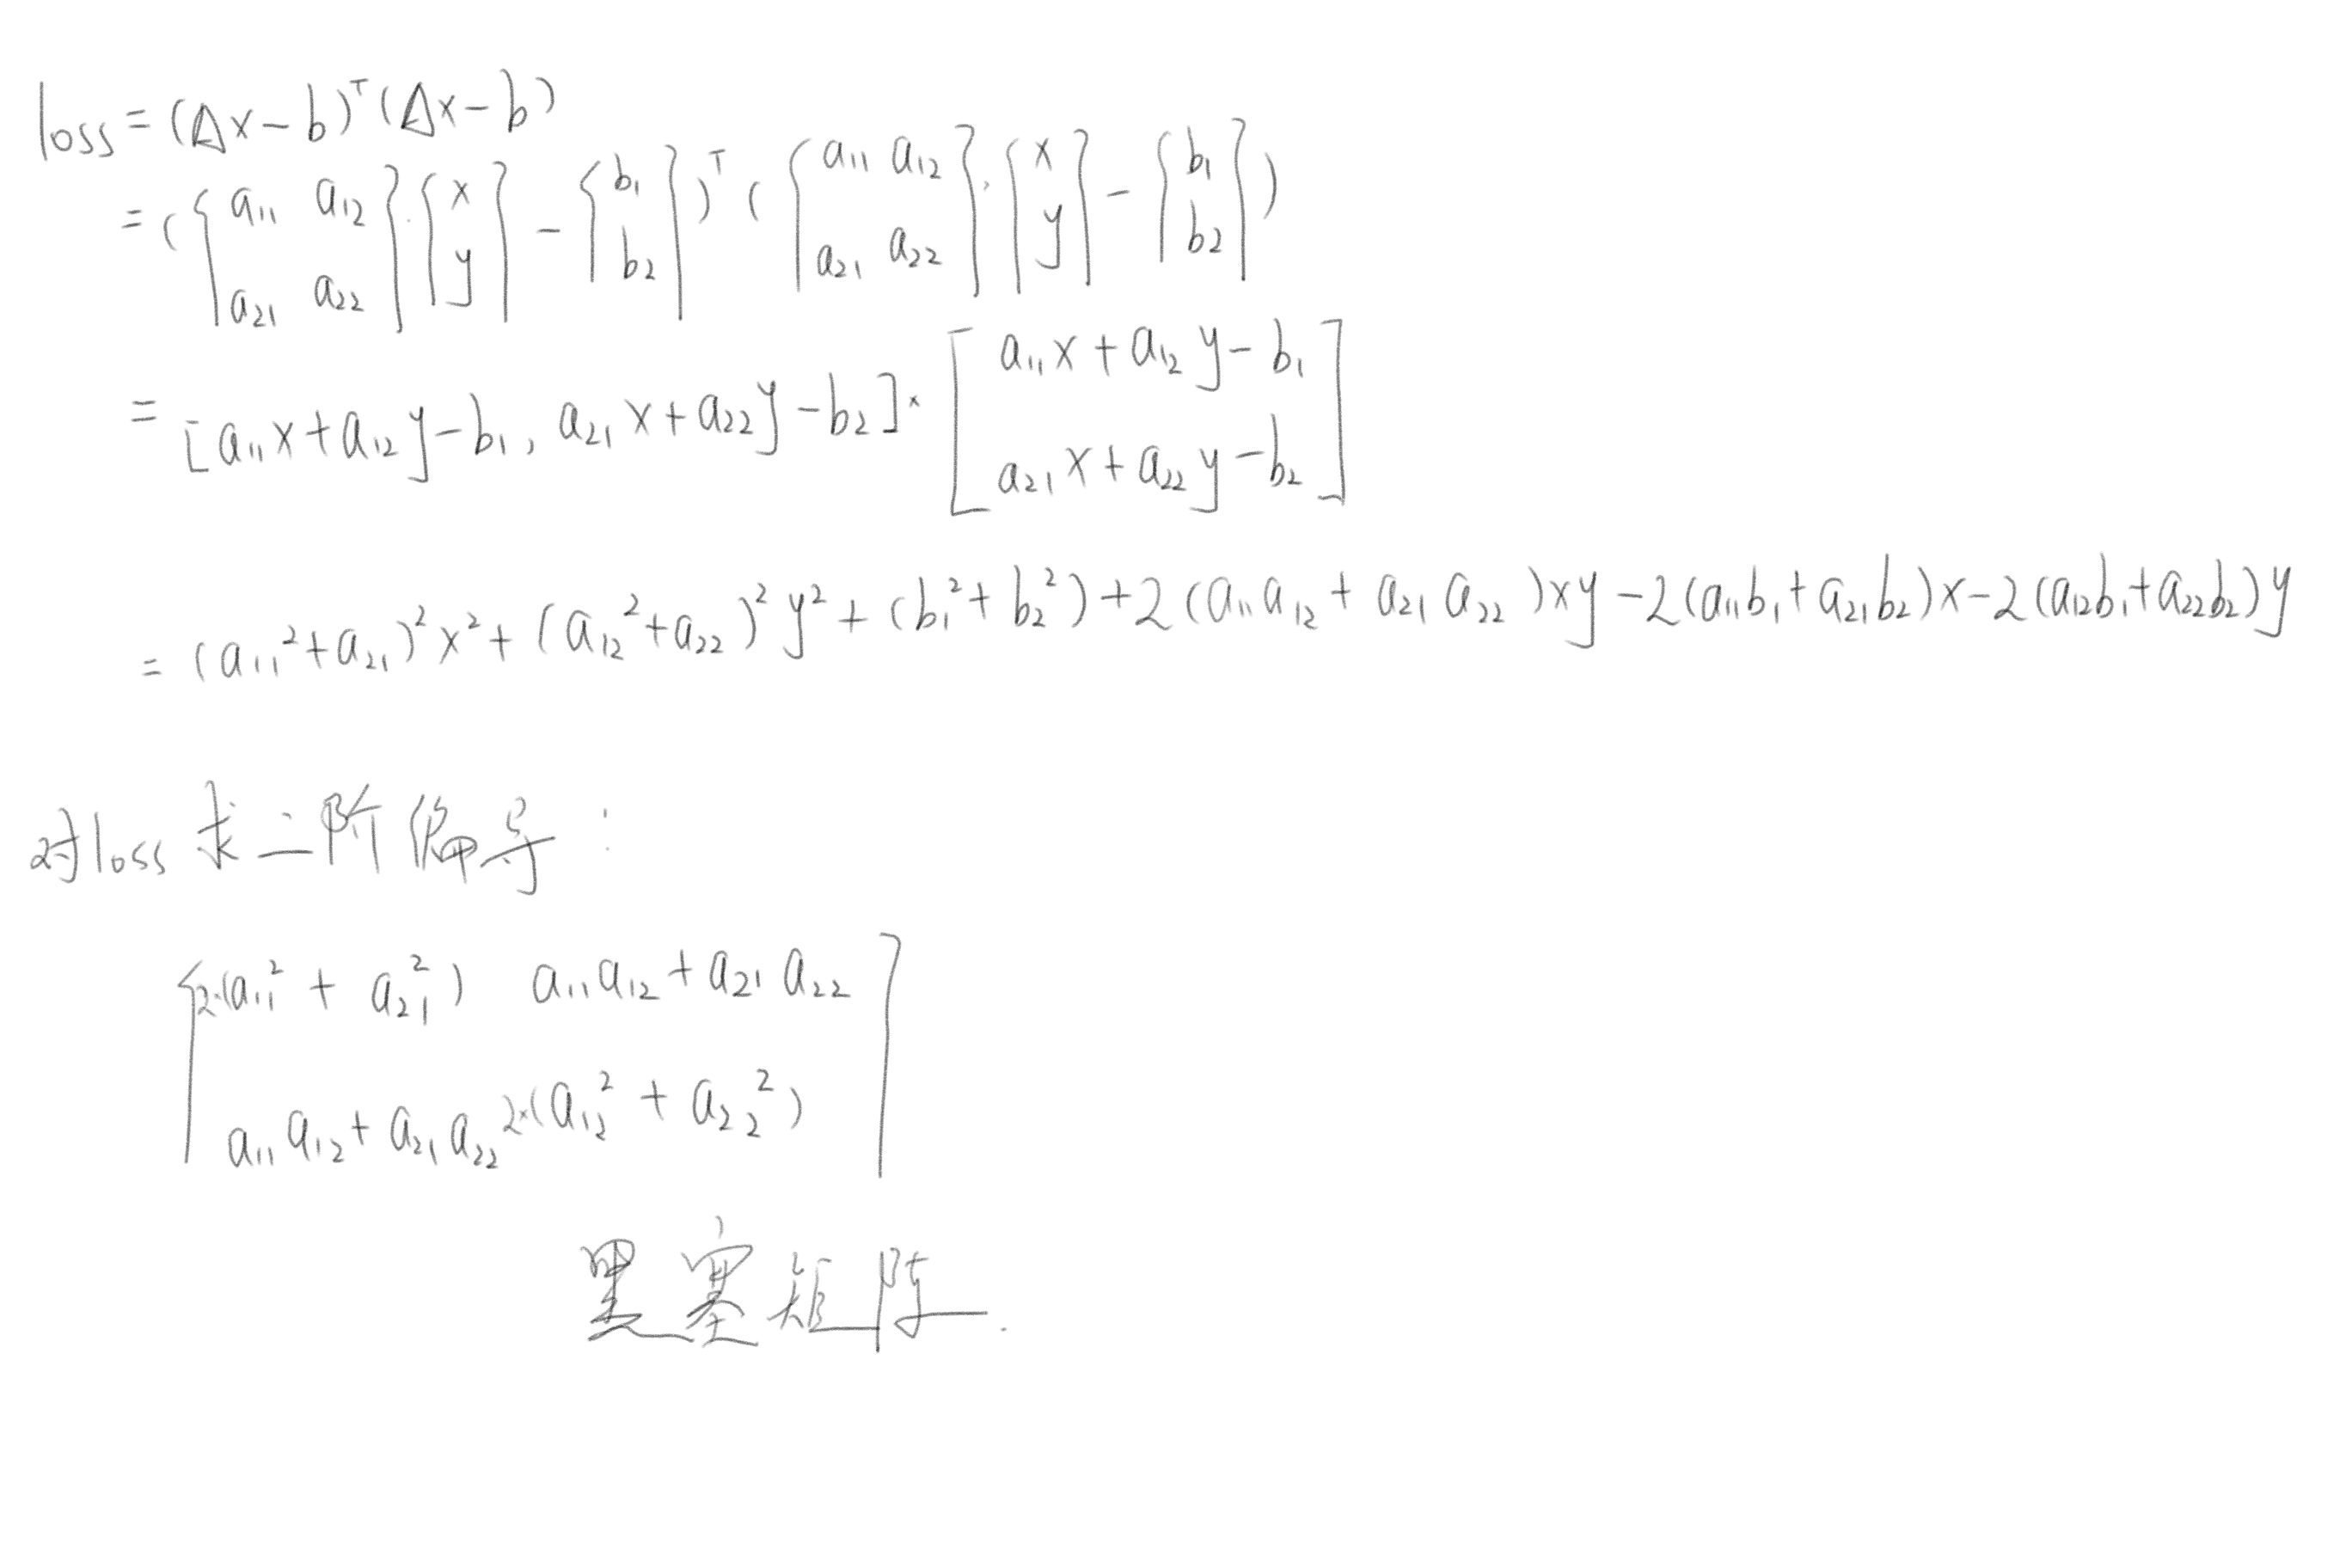 loss = (Ax - b)ᵀ(Ax - b)
= ([a₁₁ a₁₂; a₂₁ a₂₂]·[x; y] - [b₁; b₂])ᵀ([a₁₁ a₁₂; a₂₁ a₂₂]·[x; y] - [b₁; b₂])
= [a₁₁x + a₁₂y - b₁, a₂₁x + a₂₂y - b₂]·[a₁₁x + a₁₂y - b₁; a₂₁x + a₂₂y - b₂]
= (a₁₁² + a₂₁)²x² + (a₁₂² + a₂₂)²y² + (b₁² + b₂²) + 2(a₁₁a₁₂ + a₂₁a₂₂)xy - 2(a₁₁b₁ + a₂₁b₂)x - 2(a₁₂b₁ + a₂₂b₂)y
对loss求二阶偏导:
[2·(a₁₁² + a₂₁²) a₁₁a₁₂ + a₂₁a₂₂
a₁₁a₁₂ + a₂₁a₂₂ 2·(a₁₂² + a₂₂²)]
黑塞矩阵.